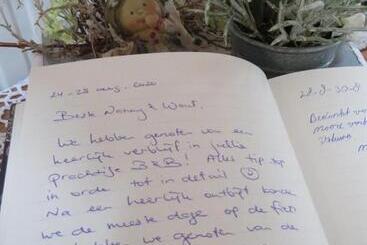 24-28 aug. 2020
Beste Nanny & Wout,
We hebben genoten van een
heerlijk verblijf in jullie
prachtige B&B! Alles tip top
in orde tot in detail ☺
Na een heerlijk ontbijt
we de meeste dagen op de fiets
hebben we genoten van de
28-8-30-8
Bedankt
mooie